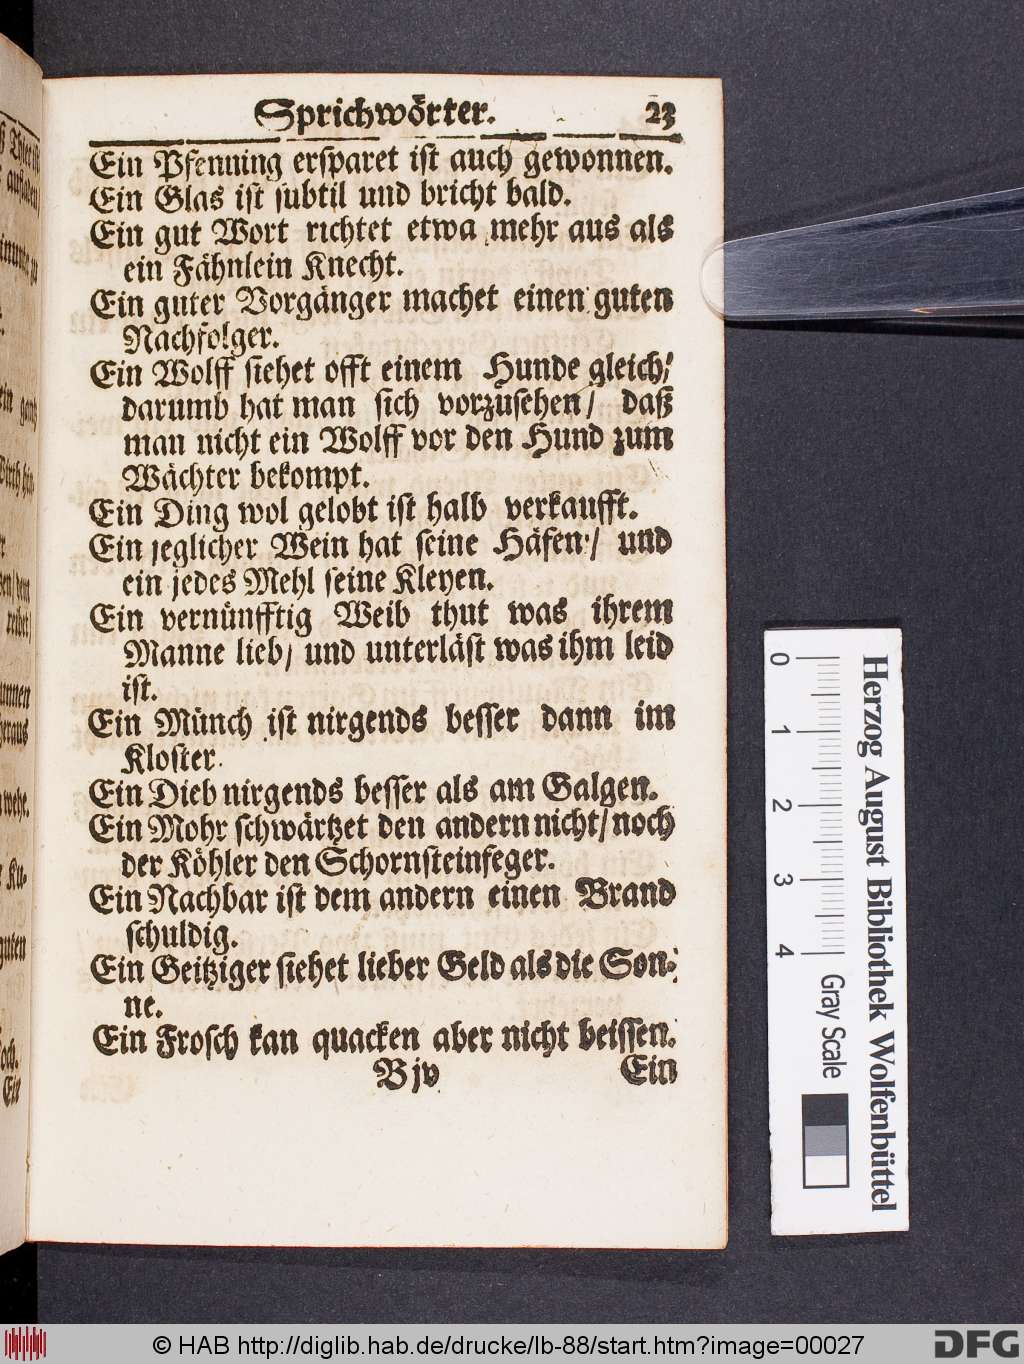 Sprichwörter. 23
Ein Pfenning ersparet ist auch gewonnen.
Ein Glas ist subtil und bricht bald.
Ein gut Wort richtet etwa mehr aus als
ein Fähnlein Knecht.
Ein guter Vorgänger machet einen guten
Nachfolger.
Ein Wolff siehet offt einem Hunde gleich/
darumb hat man sich vorzusehen/ daß
man nicht ein Wolff vor den Hund zum
Wächter bekompt.
Ein Ding wol gelobt ist halb verkaufft.
Ein jeglicher Wein hat seine Häfen/ und
ein jedes Mehl seine Kleyen.
Ein vernünfftig Weib thut was ihrem
Manne lieb/ und unterläst was ihm leid
ist.
Ein Münch ist nirgends besser dann im
Kloster.
Ein Dieb nirgends besser als am Galgen.
Ein Mohr schwärtzet den andern nicht/ noch
der Köhler den Schornsteinfeger.
Ein Nachbar ist dem andern einen Brand
schuldig.
Ein Geitziger siehet lieber Geld als die Son-
ne.
Ein Frosch kan quacken aber nicht beissen.
B jv Ein
Herzog August Bibliothek Wolfenbüttel
0 1 2 3 4 Gray Scale
© HAB http://diglib.hab.de/drucke/lb-88/start.htm?image=00027
DFG